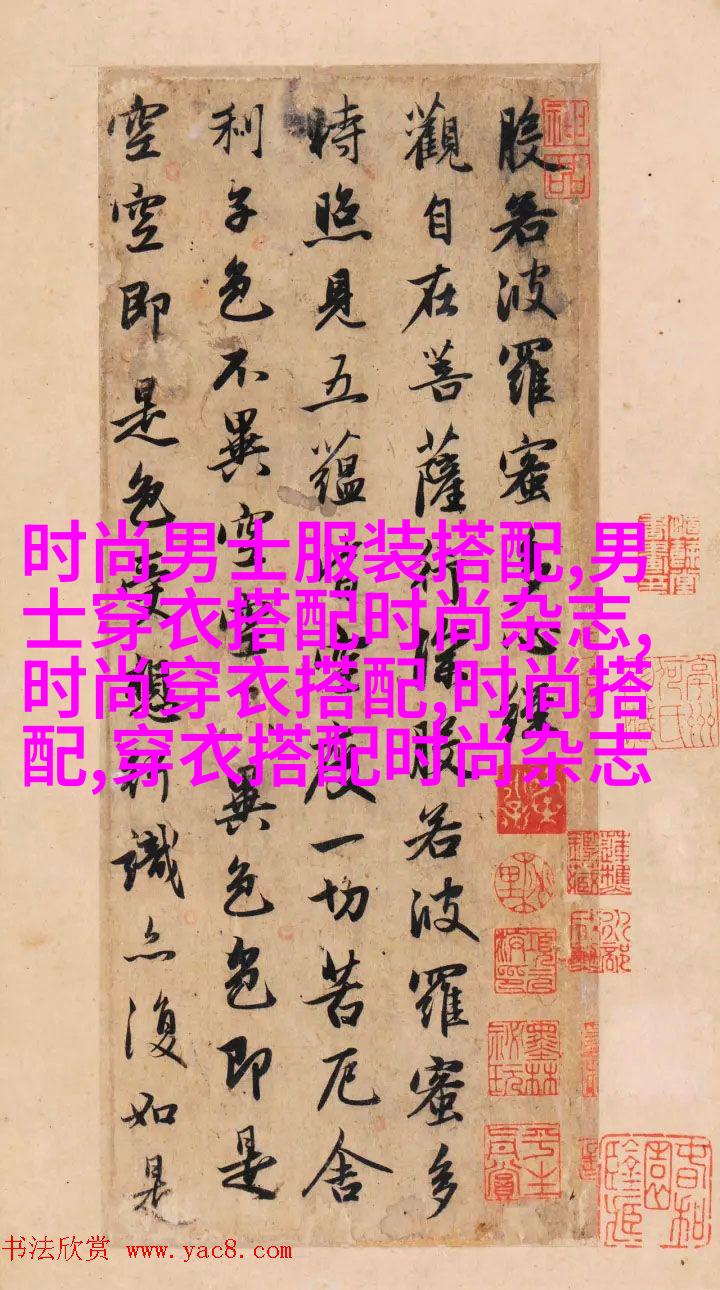 神品
般若波羅蜜多心經
觀自在菩薩行深般若波羅蜜多
時照見五蘊皆空度一切苦厄舍
利子色不異空空不異色色即是
空空即是色受想行識亦復如是
时尚男士服装搭配,男
士穿衣搭配时尚杂志,
时尚穿衣搭配,时尚搭
配,穿衣搭配时尚杂志
墨林秘玩
书法欣赏 www.yac8.com